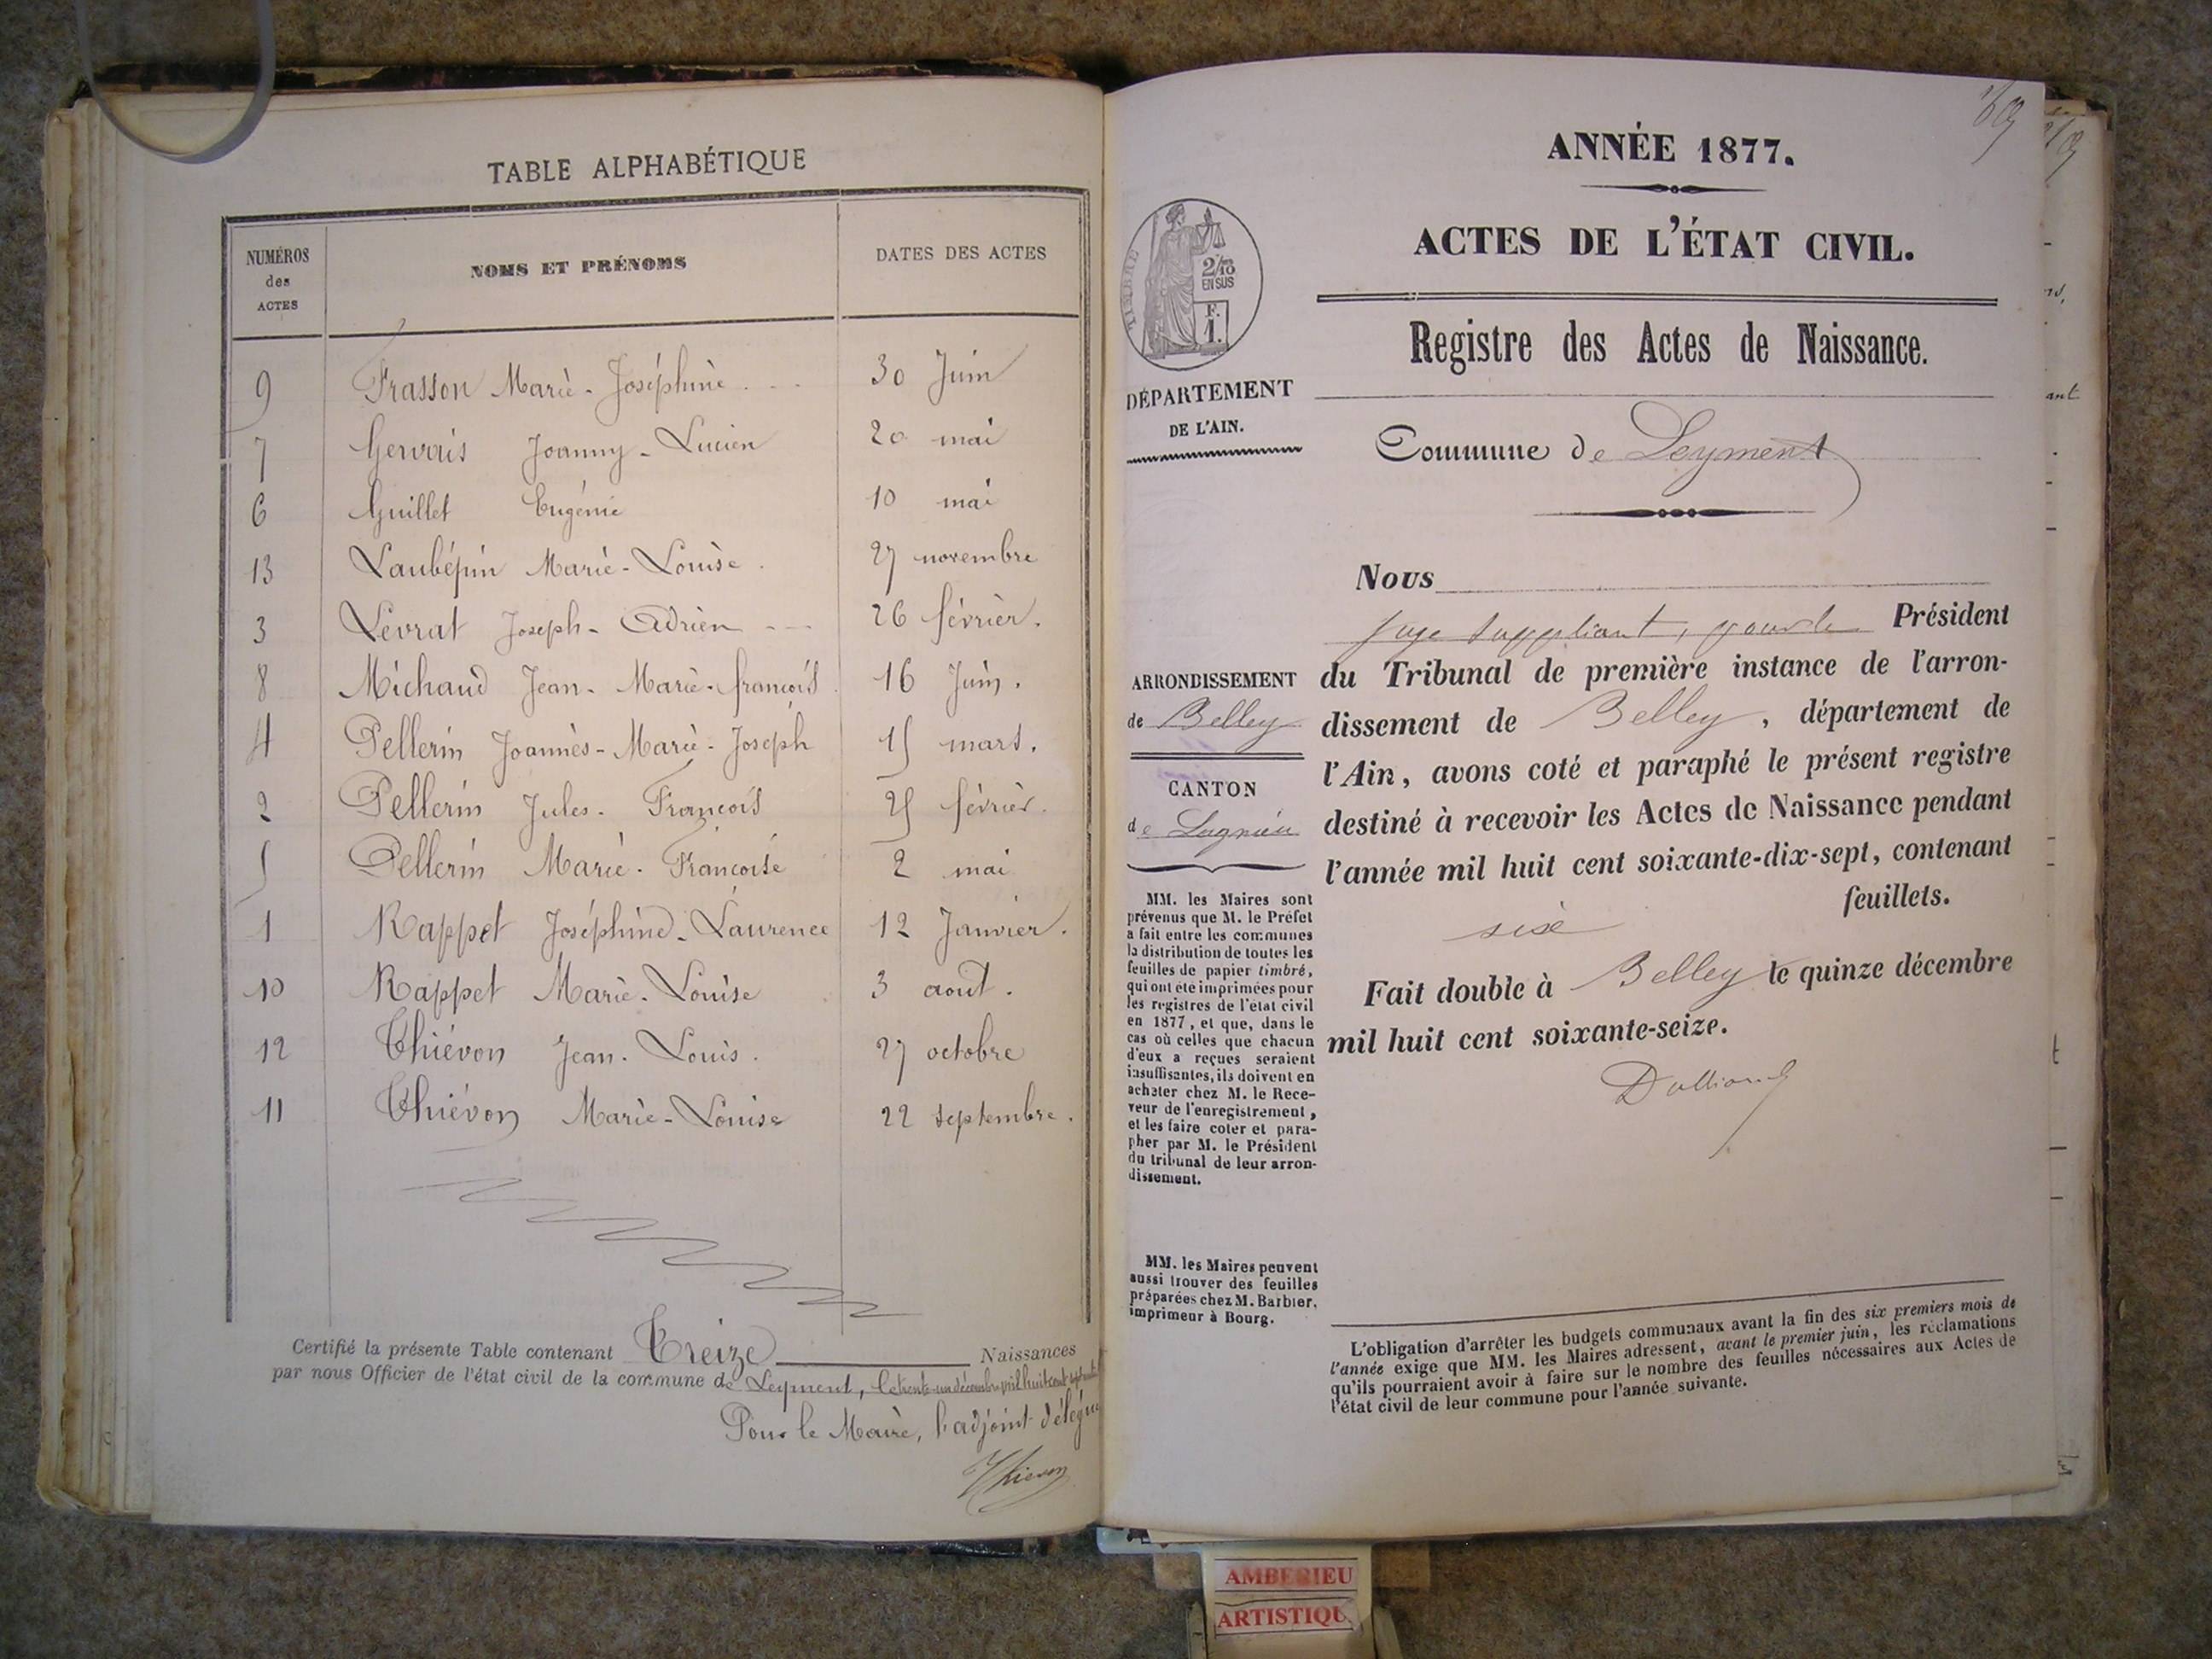 TABLE ALPHABÉTIQUE
NUMÉROS des ACTES NOMS ET PRÉNOMS DATES DES ACTES
9 Frasson Marie-Joséphine 30 Juin
7 Gervais Joanny-Lucien 20 mai
6 Guillet Eugénie 10 mai
13 Laubépin Marie-Louise. 27 novembre
3 Levrat Joseph-Adrien 26 février.
8 Michaud Jean-Marie-françois 16 Juin.
4 Pellerin Joannès-Marie-Joseph 15 mars.
2 Pellerin Jules-François 25 février.
5 Pellerin Marie-Françoise 2 mai
1 Rappet Joséphine-Laurence 12 Janvier.
10 Rappet Marie-Louise 3 août.
12 Thiévon Jean-Louis. 27 octobre
11 Thiévon Marie-Louise 22 septembre.
Certifié la présente Table contenant Treize Naissances
par nous Officier de l'état civil de la commune de Leyment, le trente-un décembre mil huit cent
Pour le Maire, l'adjoint délégué
Thievon
ANNÉE 1877.
ACTES DE L'ÉTAT CIVIL.
Registre des Actes de Naissance.
TIMBRE
2/10
EN SUS
F.
1.
DÉPARTEMENT
DE L'AIN.
Commune de Leyment
Nous
Juge suppléant, pour le Président
du Tribunal de première instance de l'arron-
dissement de Belley, département de
l'Ain, avons coté et paraphé le présent registre
destiné à recevoir les Actes de Naissance pendant
l'année mil huit cent soixante-dix-sept, contenant
six feuillets.
Fait double à Belley le quinze décembre
mil huit cent soixante-seize.
ARRONDISSEMENT
de Belley
CANTON
de Lagnieu
MM. les Maires sont
prévenus que M. le Préfet
a fait entre les communes
la distribution de toutes les
feuilles de papier timbré,
qui ont été imprimées pour
les registres de l'état civil
en 1877, et que, dans le
cas où celles que chacun
d'eux a reçues seraient
insuffisantes, ils doivent en
acheter chez M. le Rece-
veur de l'enregistrement,
et les faire coter et para-
pher par M. le Président
du tribunal de leur arron-
dissement.
MM. les Maires peuvent
aussi trouver des feuilles
préparées chez M. Barbier,
imprimeur à Bourg.
L'obligation d'arrêter les budgets communaux avant la fin des six premiers mois de
l'année exige que MM. les Maires adressent, avant le premier juin, les réclamations
qu'ils pourraient avoir à faire sur le nombre des feuilles nécessaires aux Actes de
l'état civil de leur commune pour l'année suivante.
AMBERIEU
ARTISTIQU